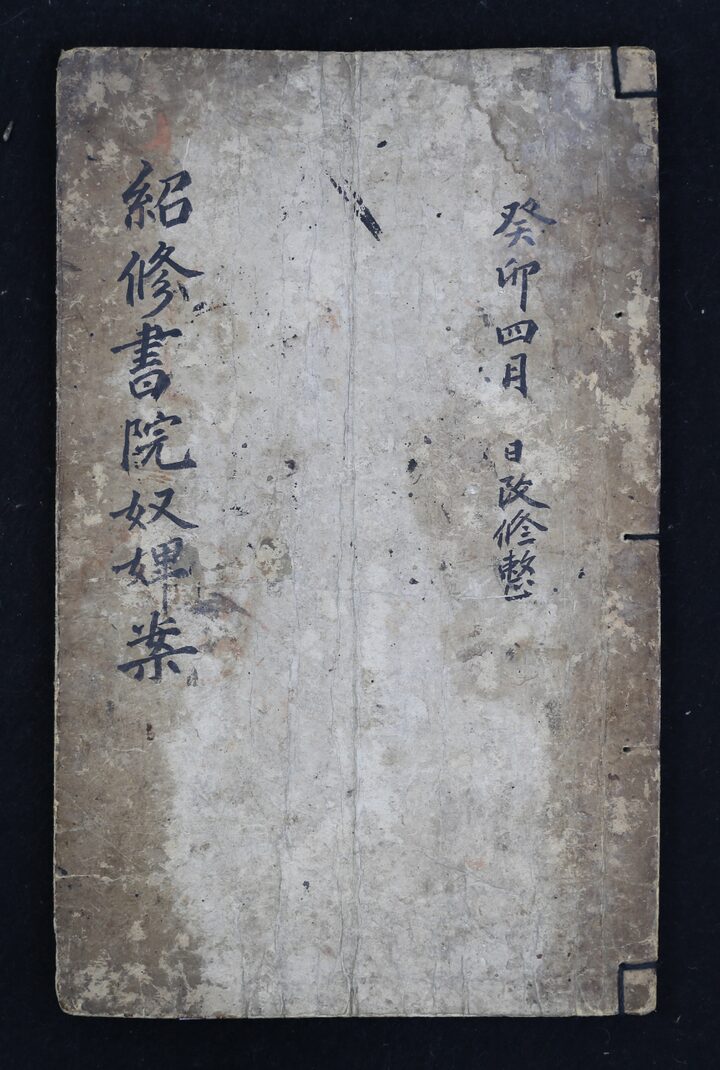 癸卯四月 日改修整
紹修書院奴婢案